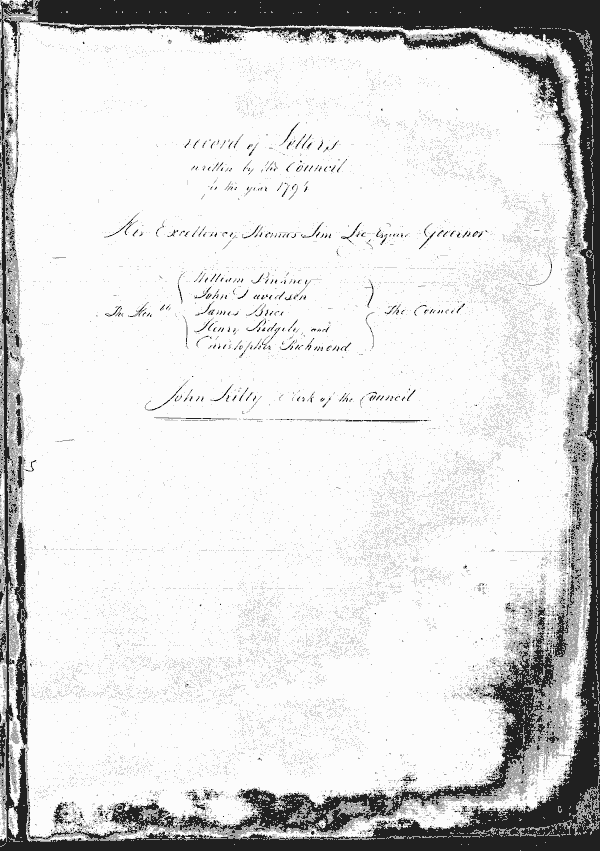 record of Letters
written by the Council
for the year 1794
His Excellency Thomas Sim Lee Esquire Governor
William Pinkney
John Davidson
The Hon.ble James Brice The Council
Henry Ridgely and
Christopher Richmond
John Kilty Clerk of the Council